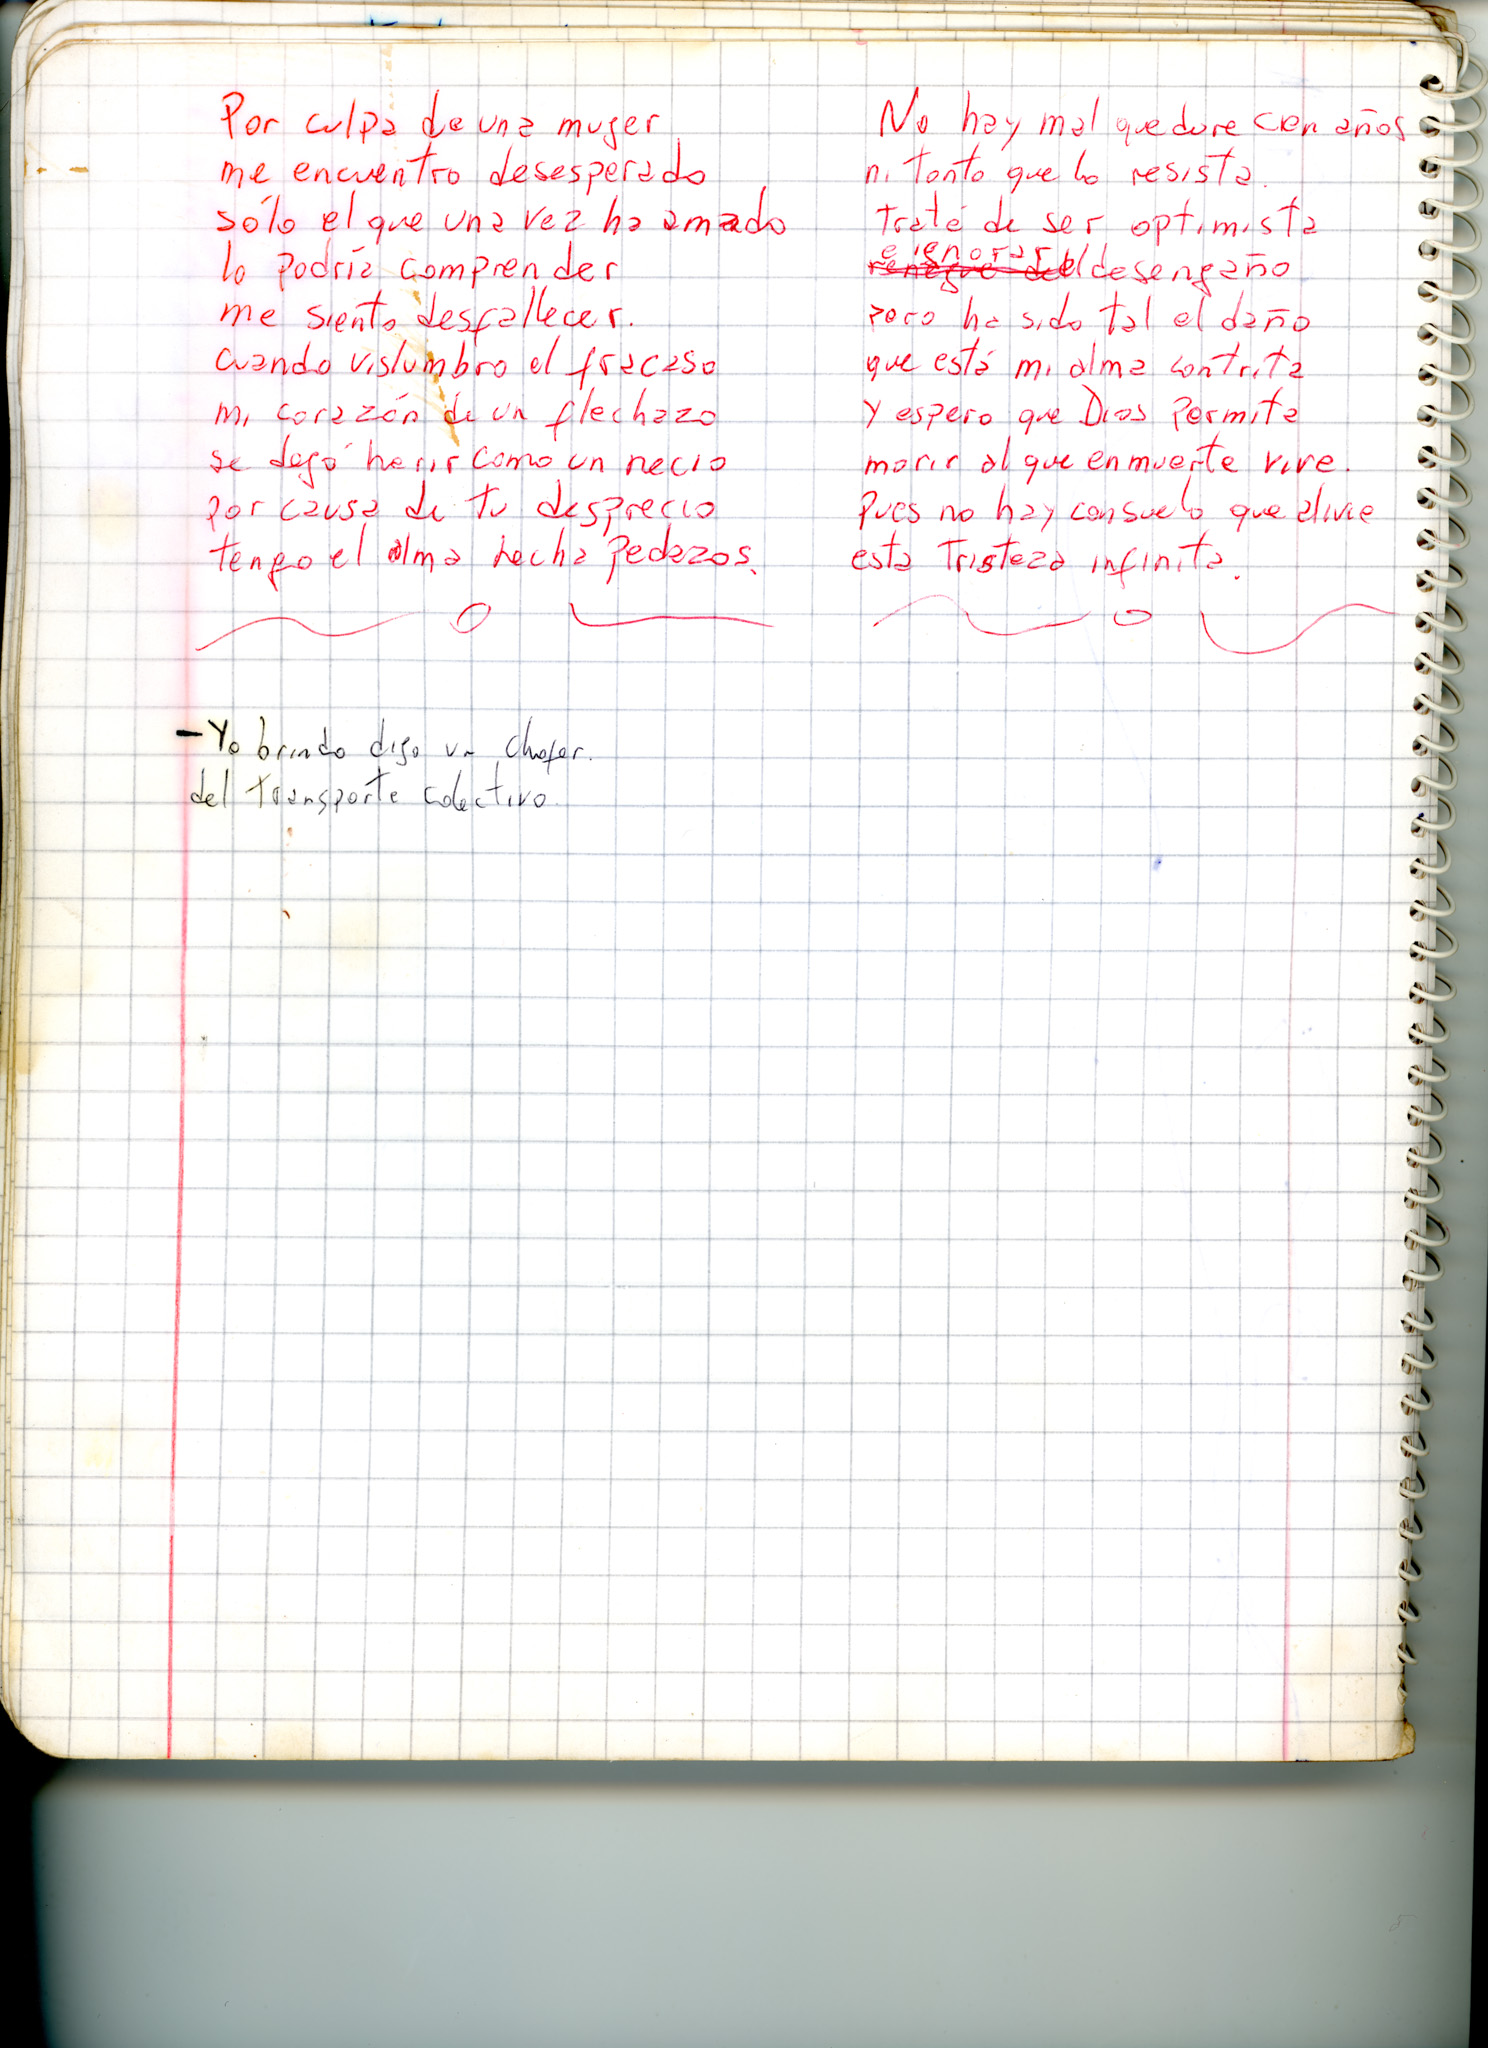 Por culpa de una mujer
me encuentro desesperado
sólo el que una vez ha amado
lo podría comprender
me siento desfallecer.
cuando vislumbro el fracaso
mi corazón de un flechazo
se dejó herir como un necio
por causa de tu desprecio
tengo el alma hecha pedazos.
No hay mal que dure cien años
ni tonto que lo resista.
traté de ser optimista
e ignorar el desengaño
pero ha sido tal el daño
que está mi alma contrita
y espero que Dios permita
morir al que en muerte vive.
pues no hay consuelo que alivie
esta tristeza infinita.
- Yo brindo digo un chofer.
del transporte colectivo.